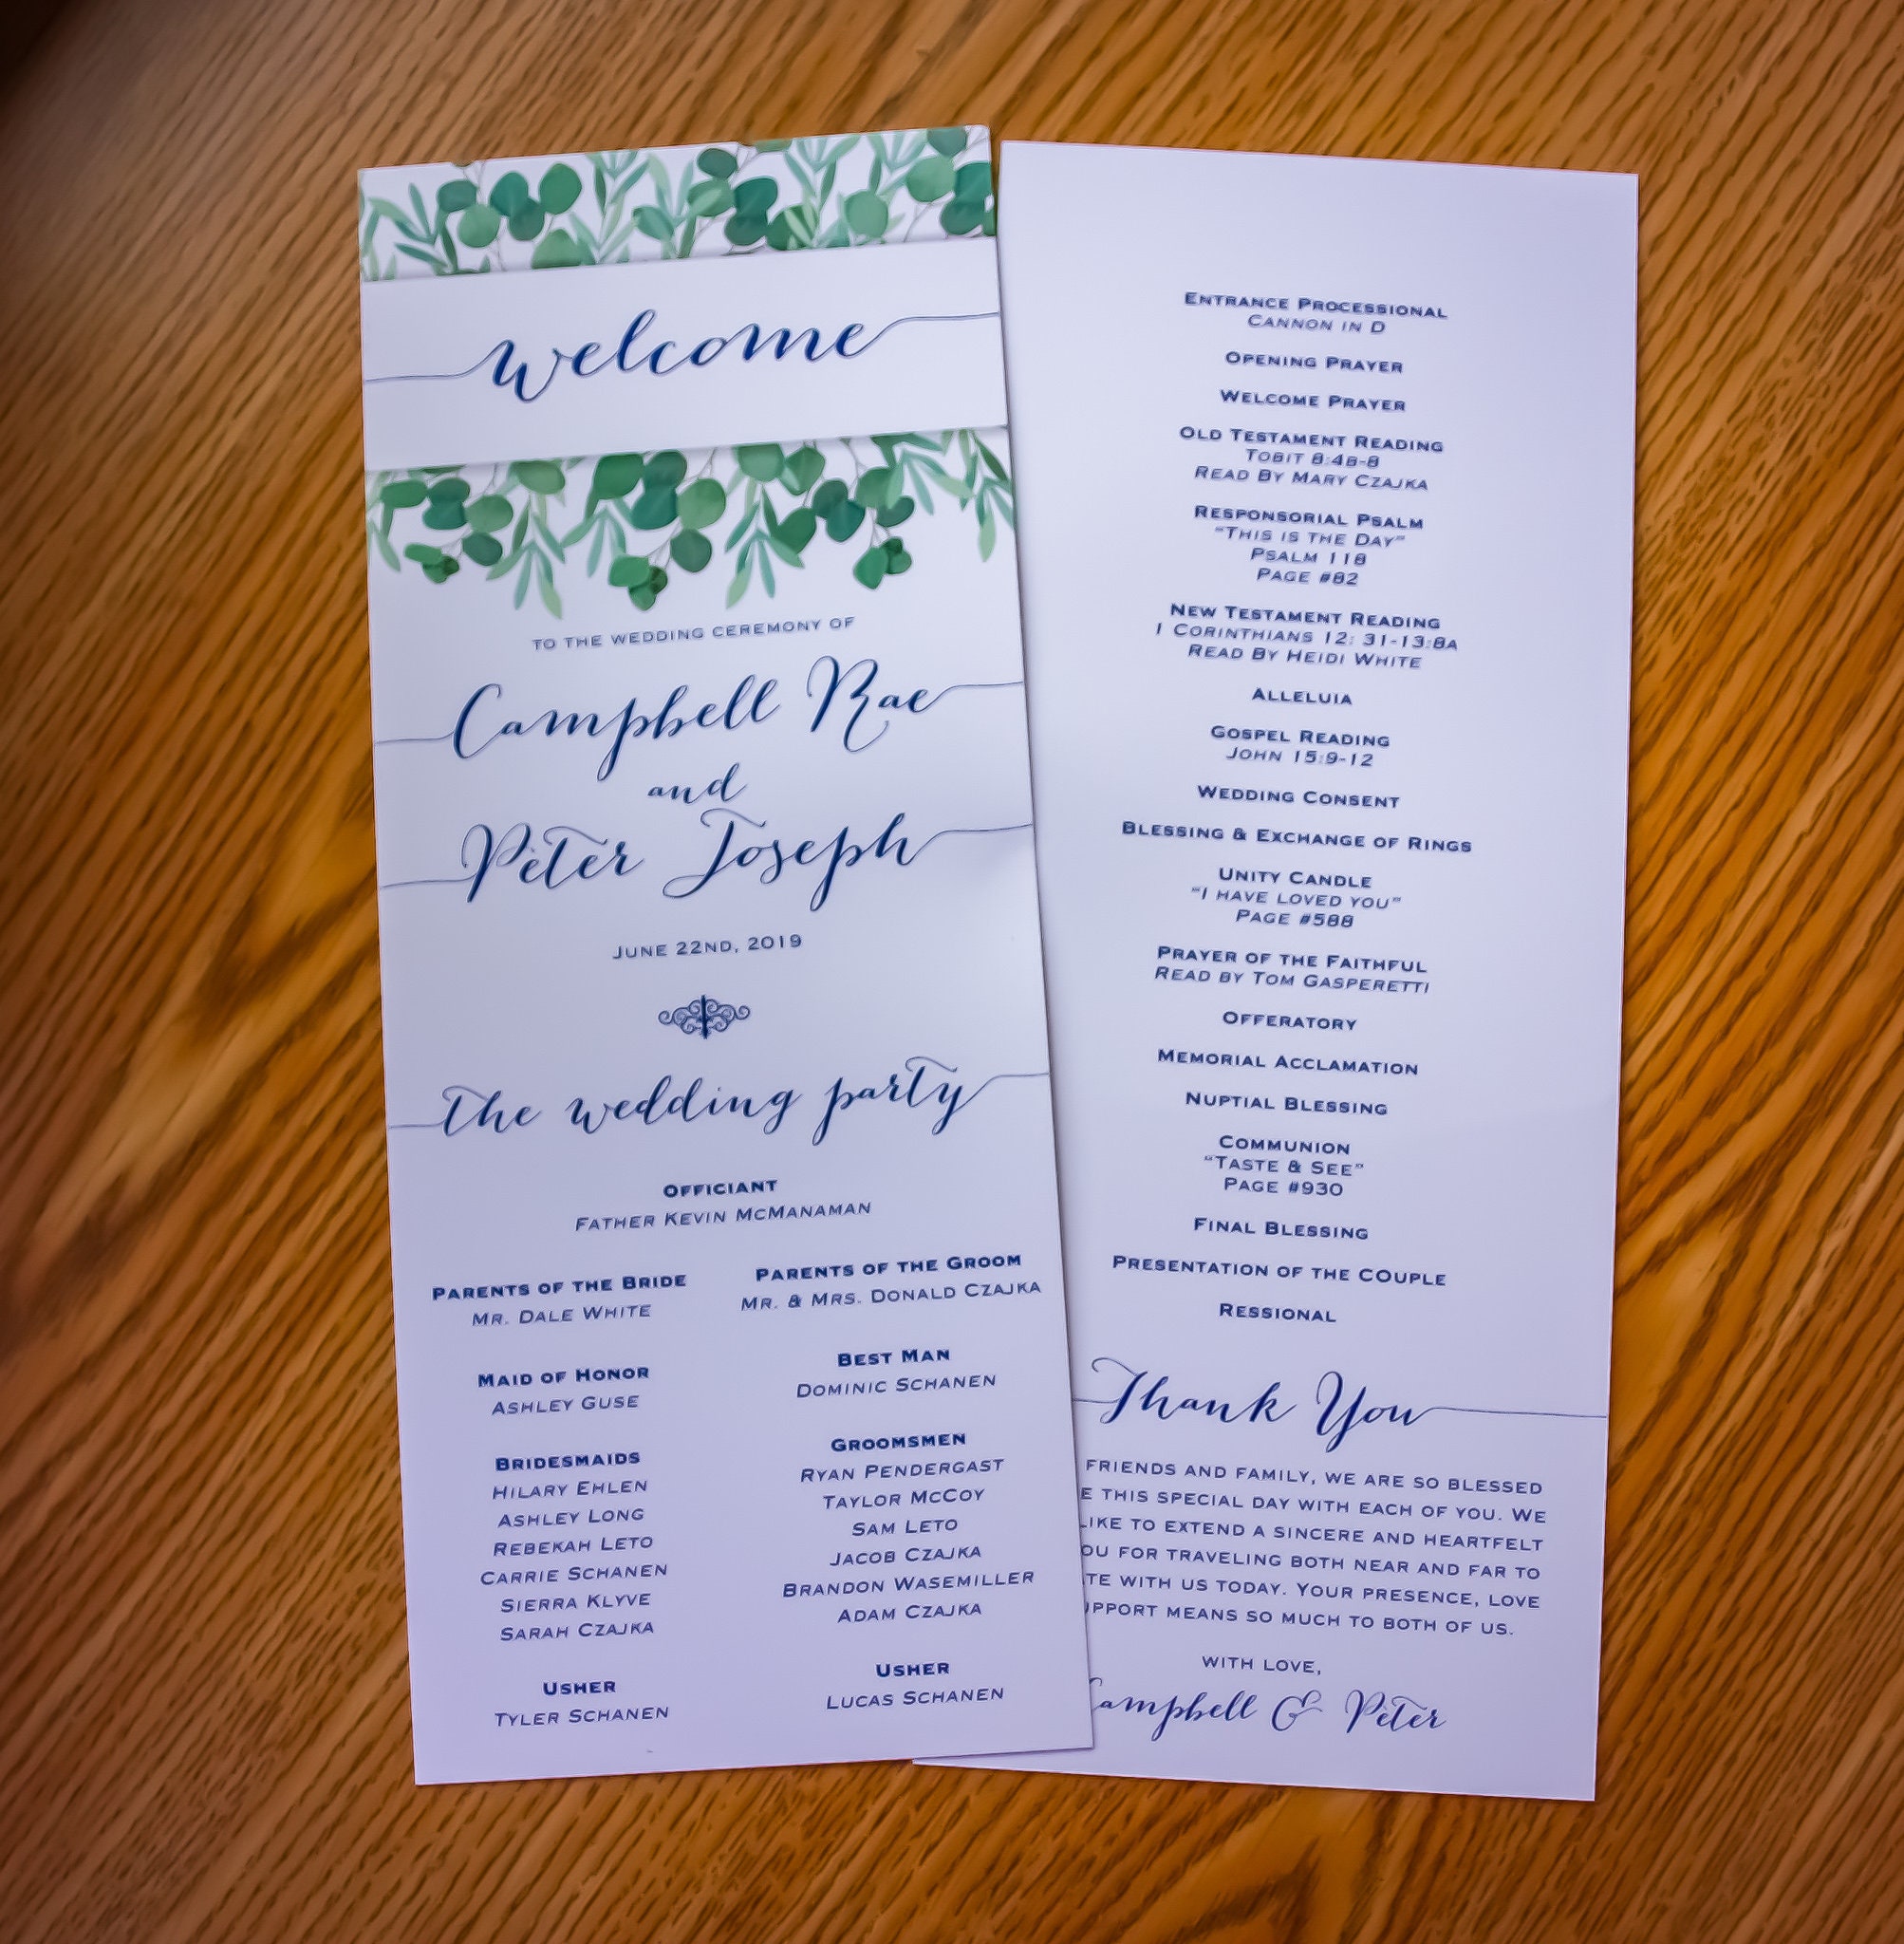 welcome
TO THE WEDDING CEREMONY OF
Campbell Rae
and
Peter Joseph
JUNE 22ND, 2019
the wedding party
OFFICIANT
FATHER KEVIN MCMANAMAN
PARENTS OF THE BRIDE
MR. DALE WHITE
MAID OF HONOR
ASHLEY GUSE
BRIDESMAIDS
HILARY EHLEN
ASHLEY LONG
REBEKAH LETO
CARRIE SCHANEN
SIERRA KLYVE
SARAH CZAJKA
USHER
TYLER SCHANEN
PARENTS OF THE GROOM
MR. & MRS. DONALD CZAJKA
BEST MAN
DOMINIC SCHANEN
GROOMSMEN
RYAN PENDERGAST
TAYLOR MCCOY
SAM LETO
JACOB CZAJKA
BRANDON WASEMILLER
ADAM CZAJKA
USHER
LUCAS SCHANEN
ENTRANCE PROCESSIONAL
CANNON IN D
OPENING PRAYER
WELCOME PRAYER
OLD TESTAMENT READING
TOBIT 8:4B-8
READ BY MARY CZAJKA
RESPONSORIAL PSALM
"THIS IS THE DAY"
PSALM 118
PAGE #82
NEW TESTAMENT READING
1 CORINTHIANS 12: 31-13:8A
READ BY HEIDI WHITE
ALLELUIA
GOSPEL READING
JOHN 15:9-12
WEDDING CONSENT
BLESSING & EXCHANGE OF RINGS
UNITY CANDLE
"I HAVE LOVED YOU"
PAGE #588
PRAYER OF THE FAITHFUL
READ BY TOM GASPERETTI
OFFERATORY
MEMORIAL ACCLAMATION
NUPTIAL BLESSING
COMMUNION
"TASTE & SEE"
PAGE #930
FINAL BLESSING
PRESENTATION OF THE COUPLE
RESSIONAL
Thank You
FRIENDS AND FAMILY, WE ARE SO BLESSED
E THIS SPECIAL DAY WITH EACH OF YOU. WE
LIKE TO EXTEND A SINCERE AND HEARTFELT
OU FOR TRAVELING BOTH NEAR AND FAR TO
TE WITH US TODAY. YOUR PRESENCE, LOVE
UPPORT MEANS SO MUCH TO BOTH OF US.
WITH LOVE,
Campbell & Peter